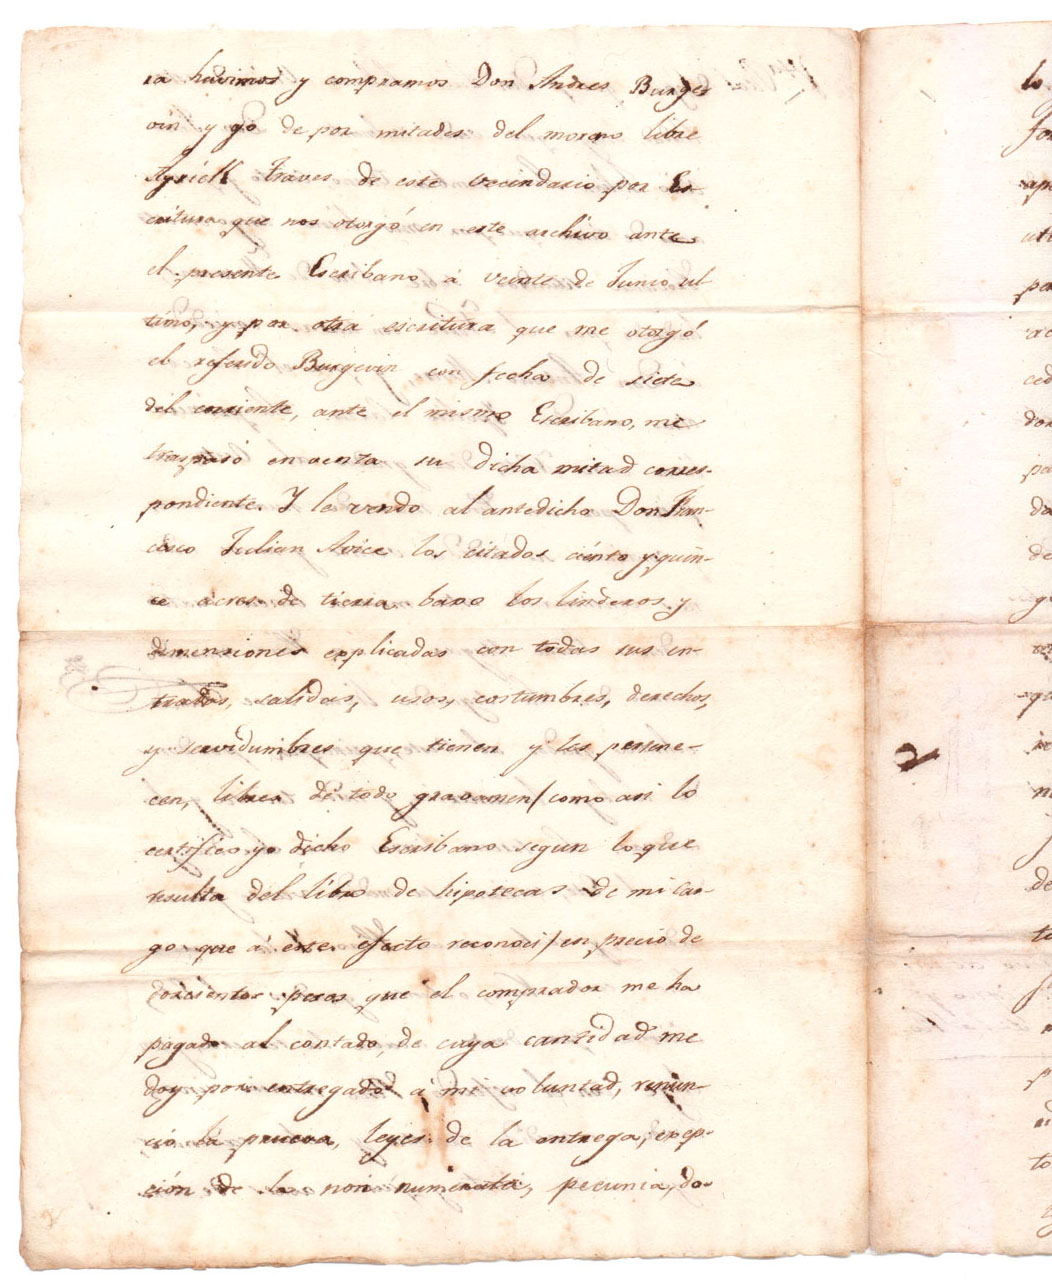 ra huvimos y compramos Don Andres Burge
vin y yó de por mitades del moreno libre
Ayrick Traves de este vecindario por Es-
critura que nos otorgó en este archivo ante
el presente Escribano á veinte de Junio ul
timo, y por otra escritura que me otorgó
el referido Burgevin con fecha de siete
del corriente, ante el mismo Escribano, me
traspasó en venta su dicha mitad corres-
pondiente. Y le vendo al antedicho Don Fran-
cisco Julian Avice los citados ciento y quin-
ce acres de tierra baxo los linderos y
dimensiones explicadas con todas sus en-
tradas, salidas, usos, costumbres, derechos,
y servidumbres que tienen y les pertene-
cen, libres de todo gravamen/como asi lo
certifico yo dicho Escribano segun lo que
resulta del libro de hipotecas de mi car-
go que á este efecto reconoci/en precio de
doscientos pesos que el comprador me ha
pagado al contado, de cuya cantidad me
doy por entregado á mi voluntad, renun-
ció la prueva, leyes de la entrega, excep-
ción de la non numerata, pecunia, do-
lo